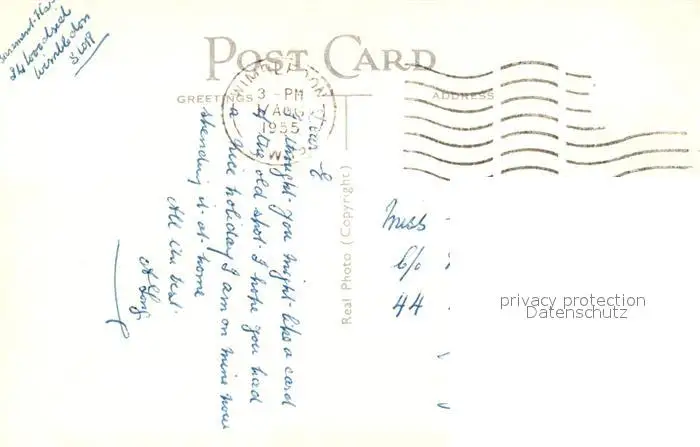 24 Woodside
Wimbledon
S.W.19
POST CARD
GREETINGS
ADDRESS
WIMBLEDON
3 - PM
AUG
1955
S.W.19
Real Photo (Copyright)
Dear E
I thought you might like a card
of the old spot. I hope you had
a nice holiday I am on mine now
spending it at home
All the best.
A Long
Miss
c/o
44
privacy protection
Datenschutz